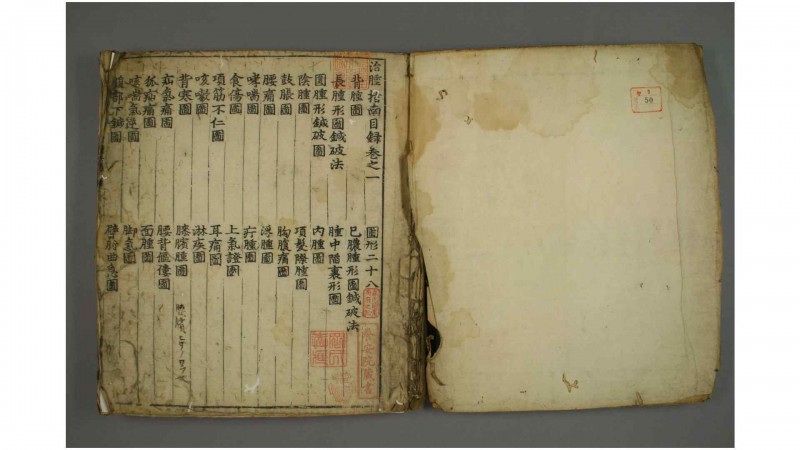 治腫指南目錄卷之一
圖形二十八
背腫圖
已膿腫形圖鍼破法
長腫形圖鍼破法
腫中階裏形圖
圓腫形鍼破圖
内腫圖
陰腫圖
項髮際腫圖
鼓脹圖
胸腹痛圖
腰痛圖
浮腫圖
哮喘圖
疔腫圖
食傷圖
上氣證圖
項筋不仁圖
耳痛圖
咳嗽圖
淋疾圖
背寒圖
膝臏腫圖
疝氣痛圖
腰背傴僂圖
痛圖
面腫圖
喘氣逆圖
脚氣圖
部下鍼圖
肘曲急圖
養安院藏書
50